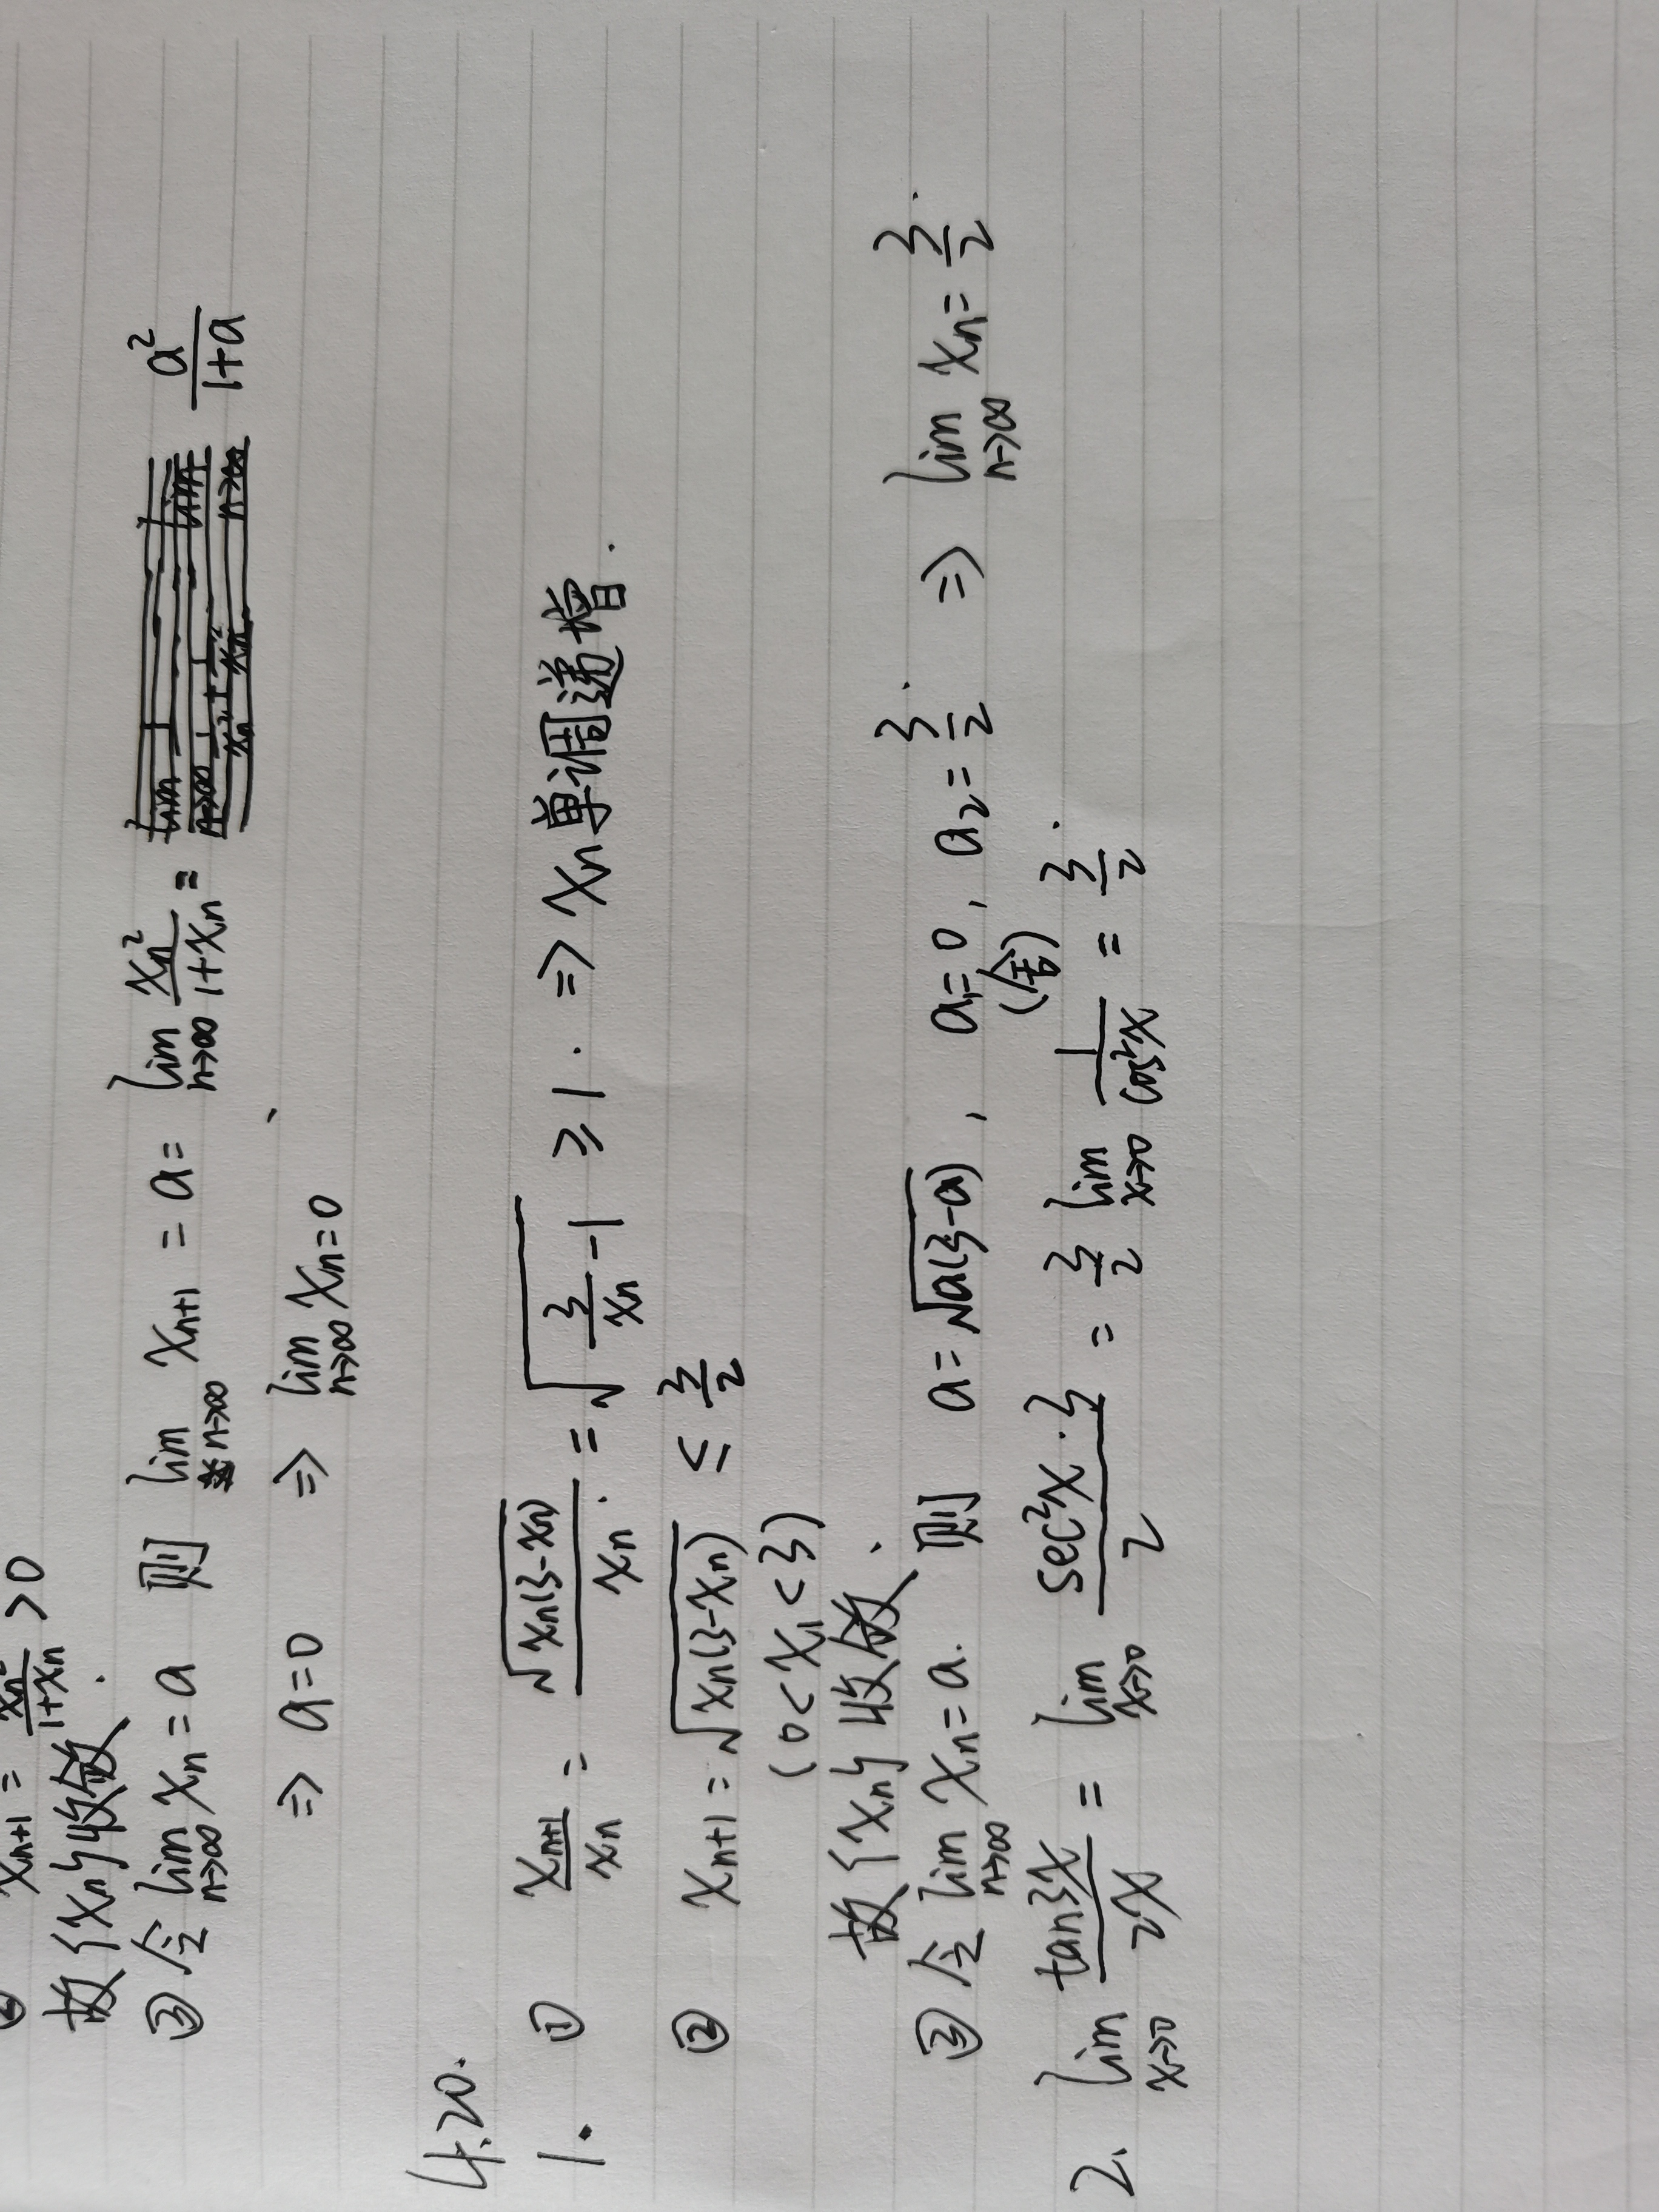 ② xₙ₊₁ = xₙ²/(1+xₙ) > 0
故{xₙ}收敛.
③ 令 lim_{n→∞} xₙ = a 则 lim_{n→∞} xₙ₊₁ = a = lim_{n→∞} xₙ²/(1+xₙ) = a²/(1+a)
⇒ a=0 ⇒ lim_{n→∞} xₙ=0
4.20.
1. ① xₙ₊₁/xₙ = √(xₙ(3-xₙ))/xₙ = √(3/xₙ - 1) ≥ 1. ⇒ xₙ单调递增.
② xₙ₊₁ = √(xₙ(3-xₙ)) ≤ 3/2
(0<x₁<3)
故{xₙ}收敛.
③ 令 lim_{n→∞} xₙ=a. 则 a=√(a(3-a)), a₁=0, a₂=3/2. ⇒ lim_{n→∞} xₙ=3/2.
(舍)
2. lim_{x→0} tan3x/2x = lim_{x→0} sec²x·3/2 = 3/2 lim_{x→0} 1/cos²x = 3/2.